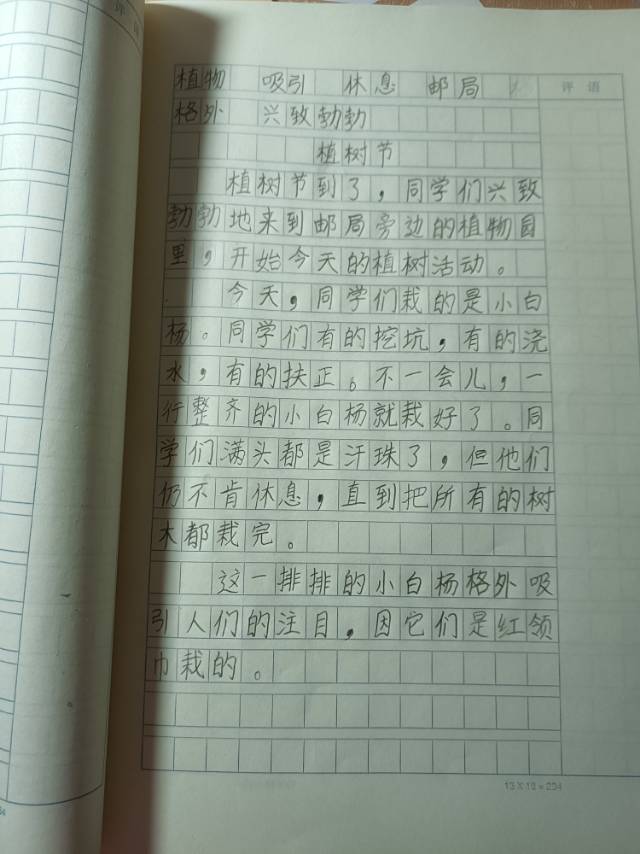 评语
植物 吸引 休息 邮局
格外 兴致勃勃
植树节
植树节到了，同学们兴致
勃勃地来到邮局旁边的植物园
里，开始今天的植树活动。
今天，同学们栽的是小白
杨。同学们有的挖坑，有的浇
水，有的扶正。不一会儿，一
行整齐的小白杨就栽好了。同
学们满头都是汗珠了，但他们
仍不肯休息，直到把所有的树
木都栽完。
这一排排的小白杨格外吸
引人们的注目，因它们是红领
巾栽的。